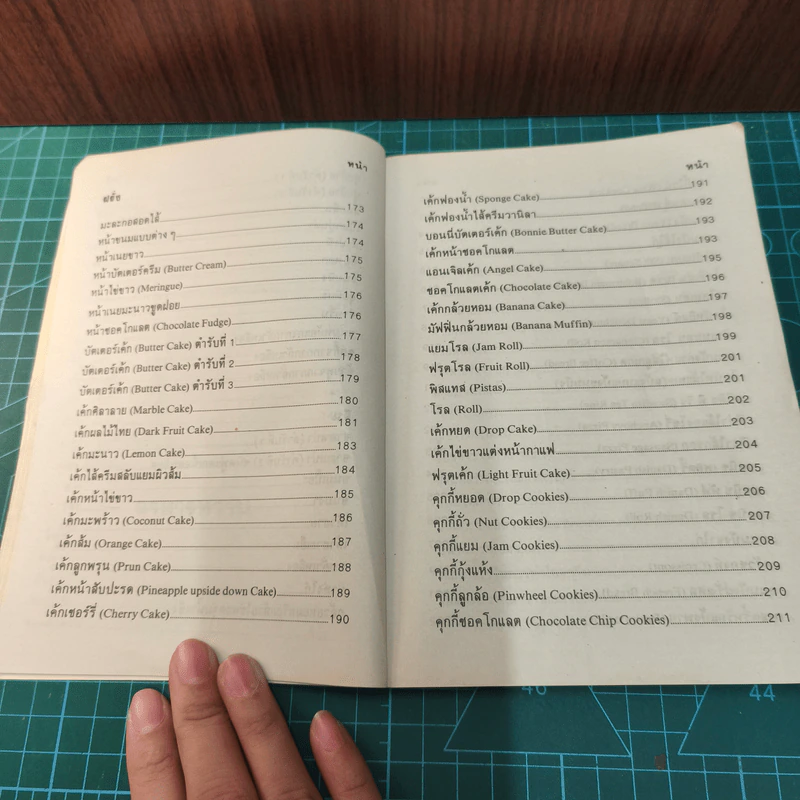 หน้า
ฝรั่ง
มะละกอสอดไส้ 173
หน้าขนมแบบต่าง ๆ 174
หน้าเนยขาว 174
หน้าบัตเตอร์ครีม (Butter Cream) 175
หน้าไข่ขาว (Meringue) 175
หน้าเนยมะนาวขูดฝอย 176
หน้าชอคโกแลต (Chocolate Fudge) 176
บัตเตอร์เค้ก (Butter Cake) ตำรับที่ 1 177
บัตเตอร์เค้ก (Butter Cake) ตำรับที่ 2 178
บัตเตอร์เค้ก (Butter Cake) ตำรับที่ 3 179
เค้กศิลาลาย (Marble Cake) 180
เค้กผลไม้ไทย (Dark Fruit Cake) 181
เค้กมะนาว (Lemon Cake) 183
เค้กไส้ครีมสลับแยมผิวส้ม 184
เค้กหน้าไข่ขาว 185
เค้กมะพร้าว (Coconut Cake) 186
เค้กส้ม (Orange Cake) 187
เค้กลูกพรุน (Prun Cake) 188
เค้กหน้าสับปะรด (Pineapple upside down Cake) 189
เค้กเชอร์รี่ (Cherry Cake) 190
หน้า
เค้กฟองน้ำ (Sponge Cake) 191
เค้กฟองน้ำไส้ครีมวานิลา 192
บอนนี่บัตเตอร์เค้ก (Bonnie Butter Cake) 193
เค้กหน้าชอคโกแลต 193
แอนเจิลเค้ก (Angel Cake) 195
ชอคโกแลตเค้ก (Chocolate Cake) 196
เค้กกล้วยหอม (Banana Cake) 197
มัฟฟินกล้วยหอม (Banana Muffin) 198
แยมโรล (Jam Roll) 199
ฟรุตโรล (Fruit Roll) 201
พิสแทส (Pistas) 201
โรล (Roll) 202
เค้กหยด (Drop Cake) 203
เค้กไข่ขาวแต่งหน้ากาแฟ 204
ฟรุตเค้ก (Light Fruit Cake) 205
คุกกี้หยอด (Drop Cookies) 206
คุกกี้ถั่ว (Nut Cookies) 207
คุกกี้แยม (Jam Cookies) 208
คุกกี้กุ้งแห้ง 209
คุกกี้ลูกล้อ (Pinwheel Cookies) 210
คุกกี้ชอคโกแลต (Chocolate Chip Cookies) 211
44